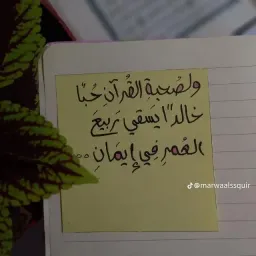 ولصُحبةِ القُرآنِ حُبًّا
خالدًا يسقي ربيعَ
العُمرِ في إيمَانِ ..
@marwaalssquir